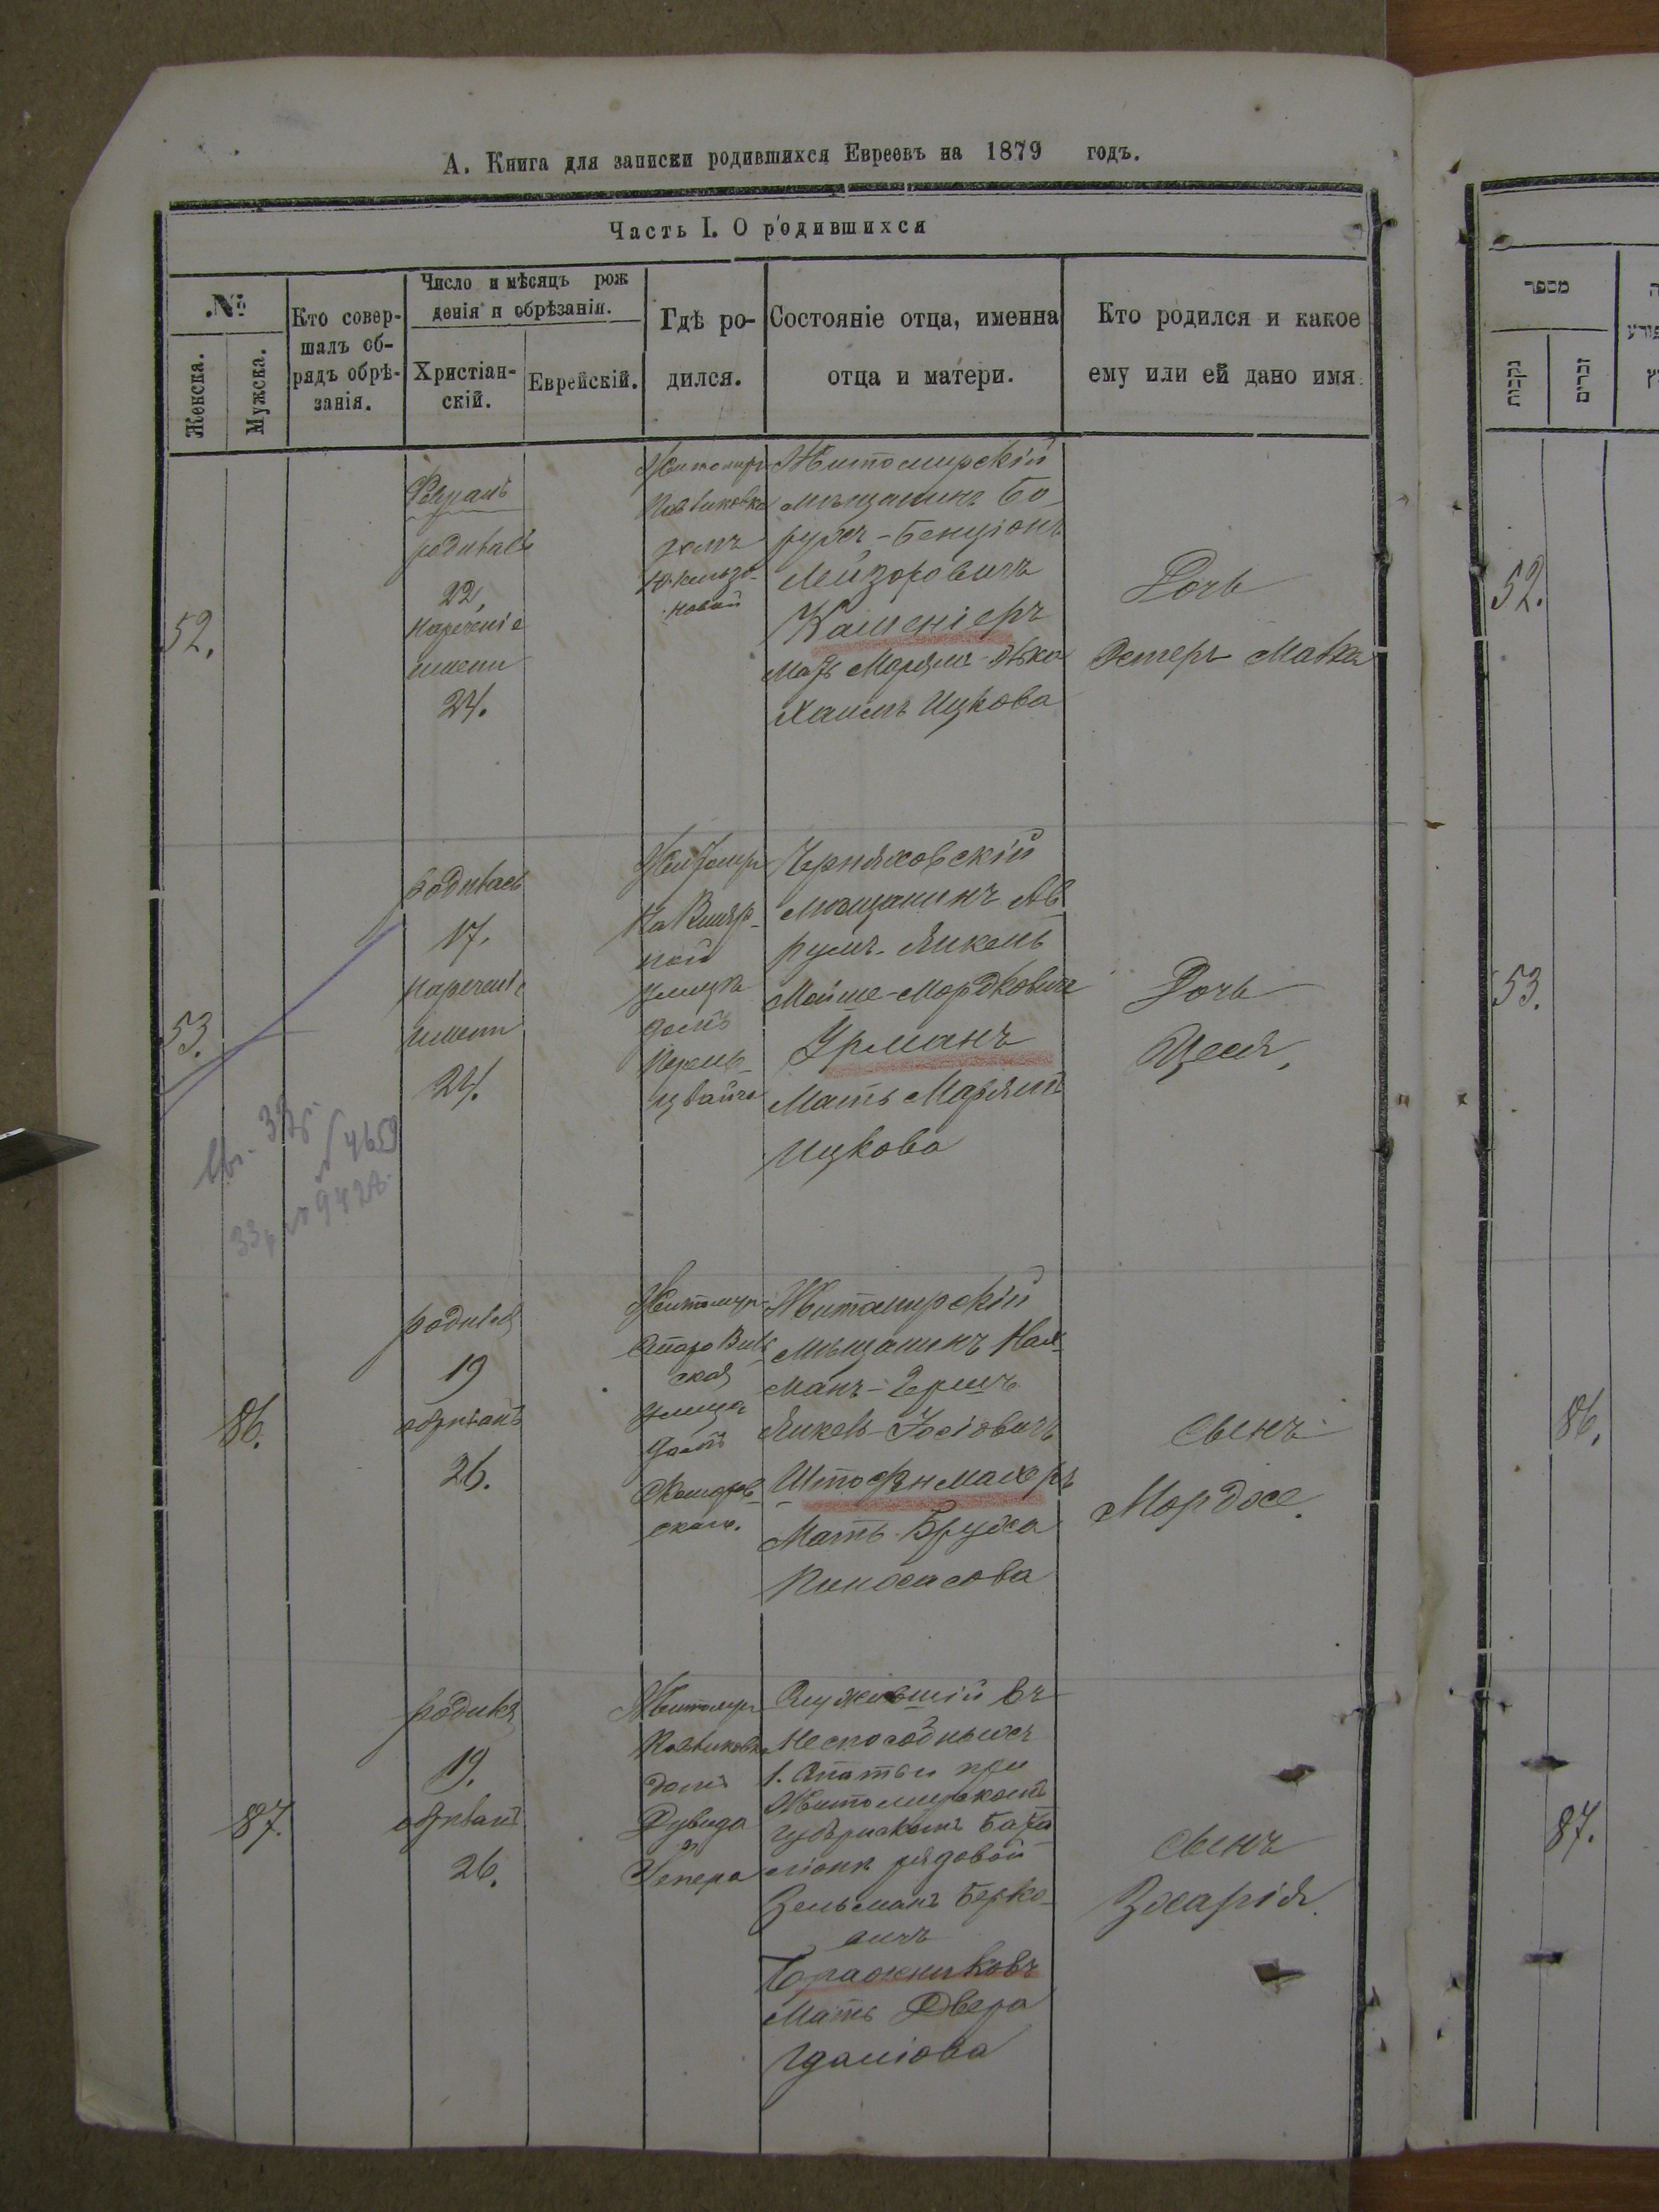 А. Книга для записки родившихся Евреевъ на 1879 годъ.
Часть I. О родившихся
№
Женска.
Мужска.
Кто совер-
шалъ об-
рядъ обрѣ-
занія.
Число и мѣсяцъ рож
денія и обрѣзанія.
Христіан-
скій.
Еврейскій.
Гдѣ ро-
дился.
Состояніе отца, именна
отца и матери.
Кто родился и какое
ему или ей дано имя.
52.
родилась
22,
нареченіе
имени
24.
Житомиръ
домъ
Житомирскій
мѣщанинъ Бо
рухъ-Бенціонъ
Лейзоровичъ
Мать Марямъ
Хаимъ Ицкова
Дочь
Эстеръ Малка
53.
родилась
17.
нареченіе
имени
24.
Житомиръ
улица
домъ
Черняховскій
мѣщанинъ Ав
румъ-Янкель
Мойше-Мордковичъ
Урманъ
Мать Марямъ
Ицкова
Дочь
Цеся,
86.
родился
19
обрѣзанъ
26.
Житомиръ
улица
домъ
Житомирскій
мѣщанинъ Нах
манъ-Гершъ
Янкель-Іосіовичъ
Штофенмахеръ
Мать Бруха
Пинхасова
Сынъ
Мордхе.
87.
родился
19.
обрѣзанъ
26.
Житомиръ
домъ
Дувида
Служившій въ
Неспособныхъ
1. Статьи при
Житомирскомъ
Губернскомъ Бата
ліонѣ рядовой
Зельманъ Берко
вичъ
Бражниковъ
Мать Двера
Сынъ
Зхарія.
מספר
נקבות
זכרים
52.
53.
86.
87.